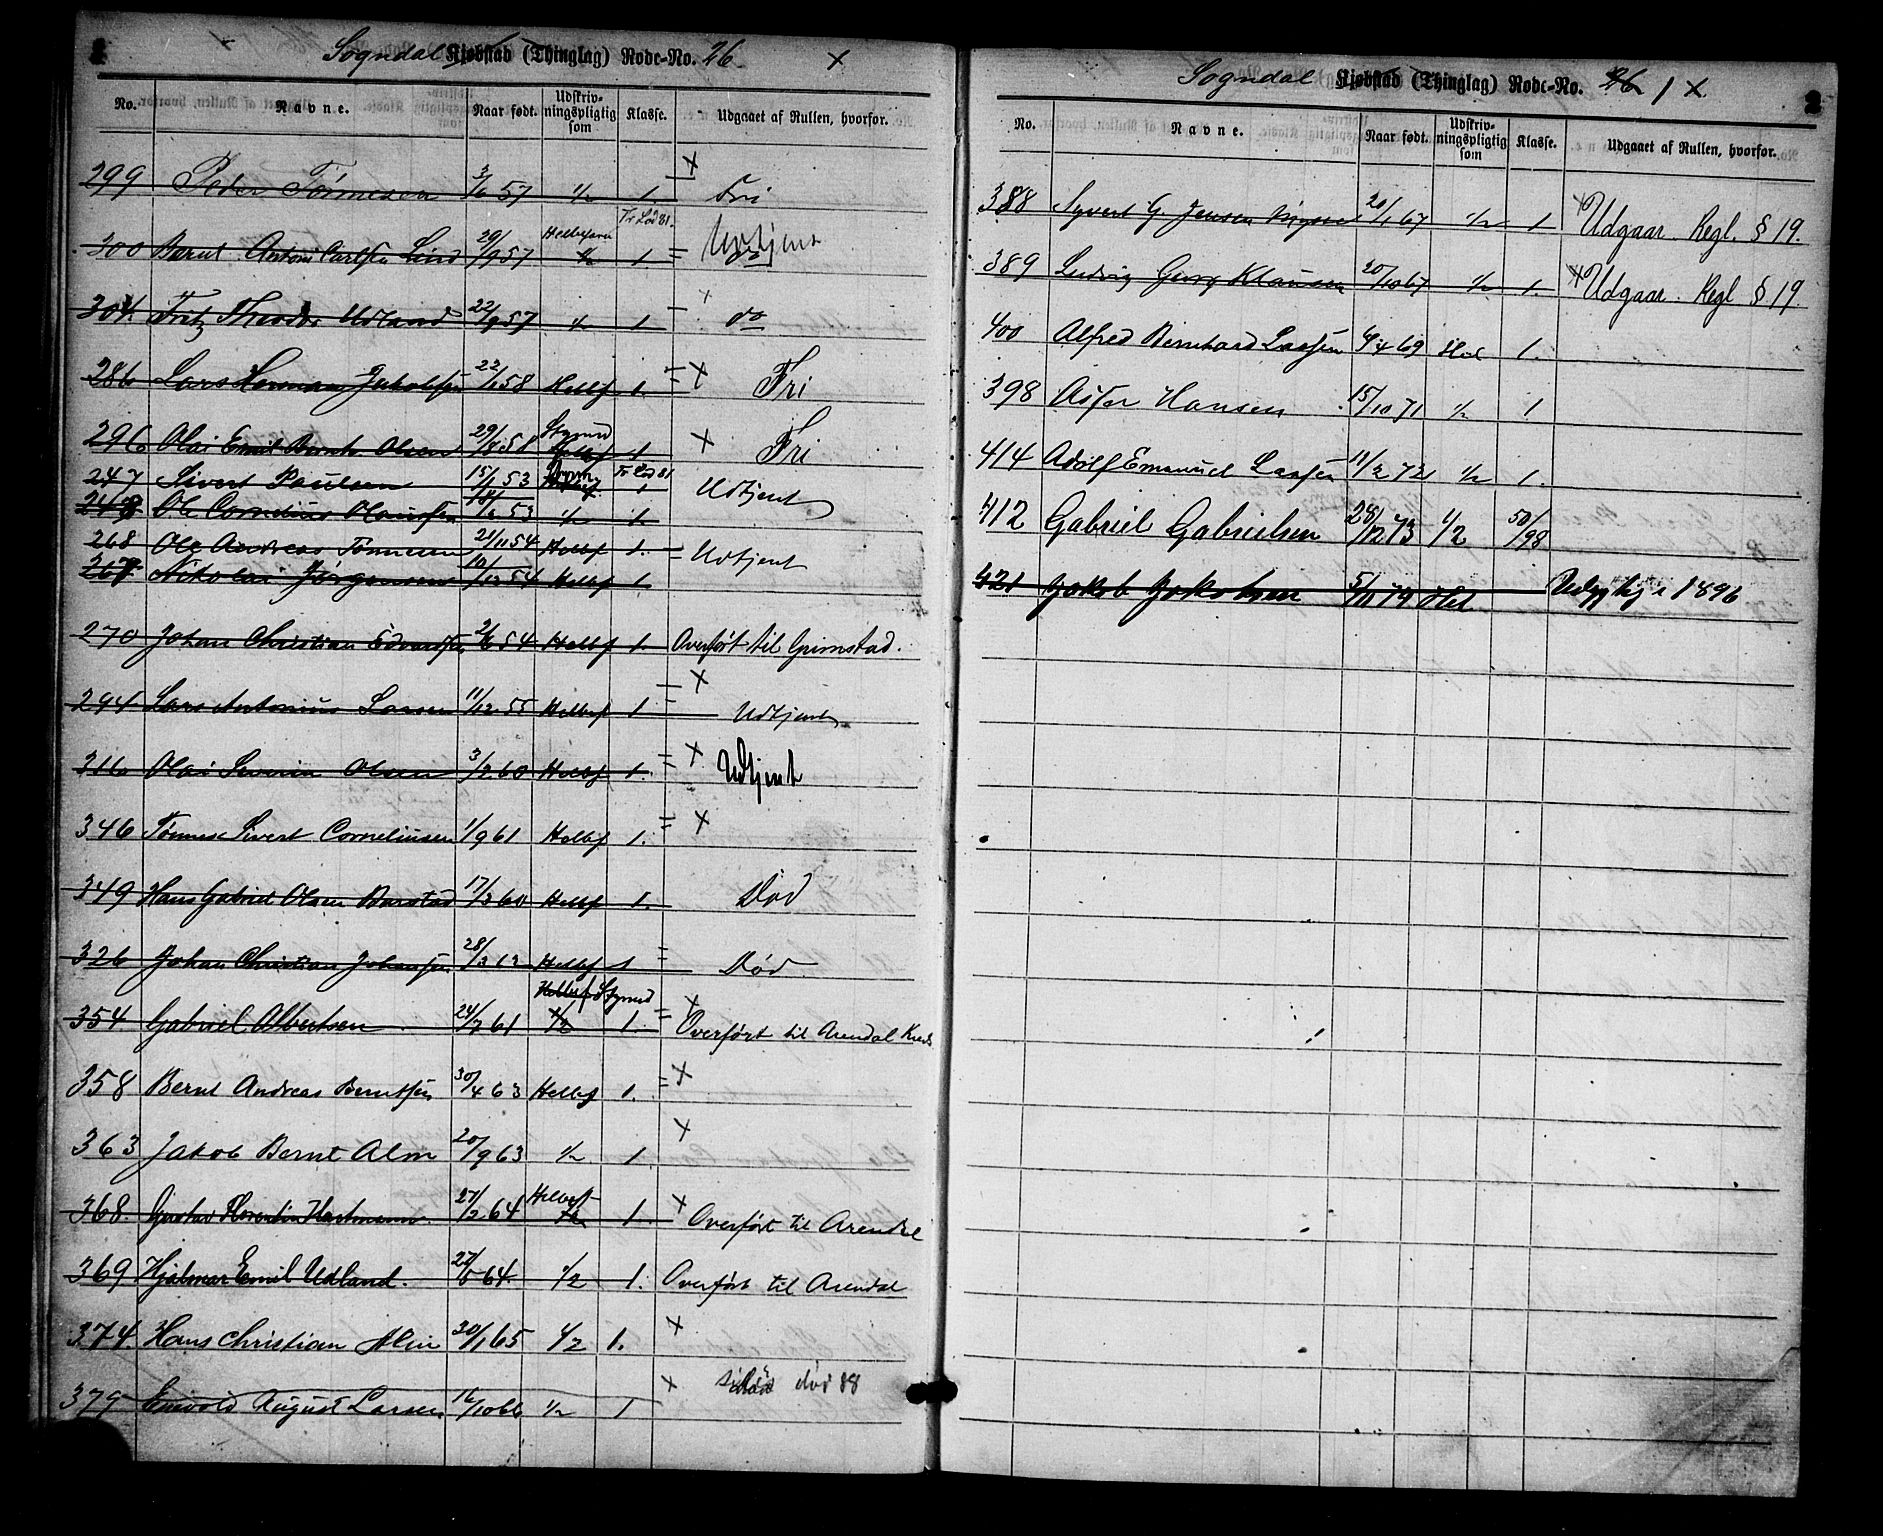 Sogndal Kjøbstad (Thinglag) Rode-No. 26 x
No. Navne. Naar født. Udskriv-ningspligtig som Klasse. Udgaaet af Rullen, hvorfor.
299 Peder Tønnesen 57 1/2 1. x Fri
300 Bernt Antoni Carlsen Lind 29/9 57 Helbefaren 1/2 Tr Lods 81. 1. = Udtjent
301. Fritz Theodor Udland 22/9 57 1/2 1 x do
286 Lars Herman Jakobsen 22/1 58 Helbf 1. = x Fri
296 Olai Emil Bernh Olsen 29/8 58 Styrmd Helbf 1 x Fri
247 Sivert Paulsen 15/1 53 Tr Lods 81 1 Udtjent
248 Ole Cornelius Olaussen 53 1/2 1.
268 Ole Andreas Tønnesen 21/11 54 Helbf 1. = Udtjent
267 Nikolai Jørgensen 10/12 54 Helbf 1
270 Johan Christian Edvardsen 54 Helbf 1. Overført til Grimstad.
294 Lars Antonius Larsen 11/12 55 Helbf 1 = x Udtjent
316 Olai Severin Olsen 3/2 60 Helbf 1. = x Udtjent
346 Tønnes Sivert Corneliussen 1/9 61 Helbf 1. = x
349 Hans Gabriel Olsen Barstad 17/3 60 Helbf 1. Død
326 Johan Christian Johansen 28/3 62 Helbf 1 = Død
354 Gabriel Albertsen 24/7 61 Helbef Styrmd 1/2 1. = x Overført til Arendal Kreds
358 Bernt Andreas Berntsen 30/4 63 Helbf 1. = x
363 Jakob Bernt Alm 20/9 63 1/2 1. x
368. Gustav Florentin Hartmann 27/2 64 Helbef 1/2 1. x Overført til Arendal
369 Hjalmar Emil Udland. 27/5 64 1/2 1. Overført til Arendal
374. Hans Christian Alm 30/1 65 1/2 1. x
379 Enevold August Larsen 16/10 66 1/2 1 x død 88
Sogndal Kjøbstad (Thinglag) Rode-No. 26 1 x 2
No. Navne. Naar født. Udskriv-ningspligtig som Klasse. Udgaaet af Rullen, hvorfor.
388 Syvert G. Jensen 20/1 67 1/2 1 x Udgaar. Regl. § 19.
389 Ludvig Georg Klausen 20/10 67 1/2 1. x Udgaar. Regl § 19.
400 Alfred Bernhard Larsen 9/4 69 Hel 1.
398 Hansen 15/10 71 1/2 1
414 Adolf Emanuel Larsen 11/2 72 1/2 1.
412 Gabriel Gabrielsen 28/12 73 1/2 50/98
421 Jakob Jakobsen 5/11 74 Hel 1896